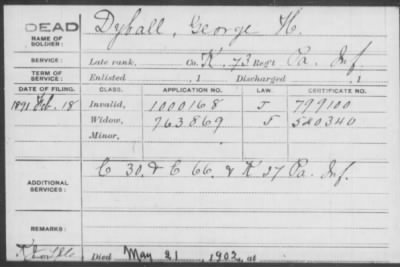 DEAD
NAME OF SOLDIER: Dyball, George H.
SERVICE: Late rank, Co. K, 73 Reg't Pa. Inf
TERM OF SERVICE: Enlisted , 1 Discharged , 1
DATE OF FILING. CLASS. APPLICATION NO. LAW. CERTIFICATE NO.
1891 Feb. 18 Invalid, 1000168 J 799100
Widow, 763.869 J 540340
Minor,
ADDITIONAL SERVICES: C 30. & C 66. & K 27 Pa. Inf.
REMARKS:
Died May 21, 1902, at